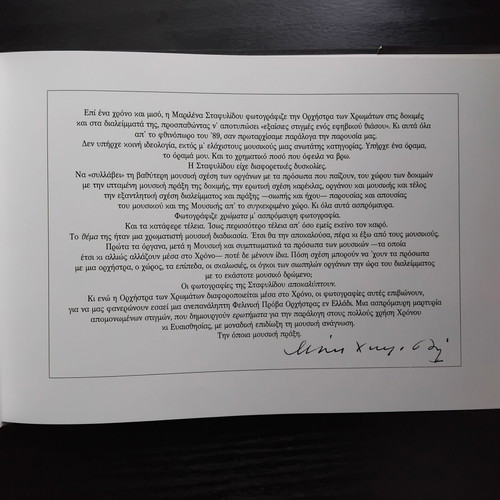 Επί ένα χρόνο και μισό, η Μαριλένα Σταφυλίδου φωτογράφιζε την Ορχήστρα των Χρωμάτων στις δοκιμές
και στα διαλείμματά της, προσπαθώντας ν' αποτυπώσει «εξαίσιες στιγμές ενός εφηβικού θιάσου». Κι αυτά όλα
απ' το φθινόπωρο του '89, σαν πρωταρχίσαμε παράλογα την παρουσία μας.
Δεν υπήρχε κοινή ιδεολογία, εκτός μ' ελάχιστους μουσικούς μιας ανωτάτης κατηγορίας. Υπήρχε ένα όραμα,
το όραμά μου. Και το χρηματικό ποσό που όφειλα να βρω.
Η Σταφυλίδου είχε διαφορετικές δυσκολίες.
Να «συλλάβει» τη βαθύτερη μουσική σχέση των οργάνων με τα πρόσωπα που παίζουν, του χώρου των δοκιμών
με την ιπταμένη μουσική πράξη της δοκιμής, την ερωτική σχέση καρέκλας, οργάνου και μουσικής και τέλος
την εξαντλητική σχέση διαλείμματος και πράξης —σιωπής και ήχου— παρουσίας και απουσίας
του μουσικού και της Μουσικής απ' το συγκεκριμένο χώρο. Κι όλα αυτά ασπρόμαυρα.
Φωτογράφιζε χρώματα μ' ασπρόμαυρη φωτογραφία.
Και τα κατάφερε τέλεια. Ίσως περισσότερο τέλεια απ' όσο εμείς εκείνο τον καιρό.
Το θέμα της ήταν μια χρωματιστή μουσική διαδικασία. Έτσι θα την αποκαλούσα, πέρα κι έξω από τους μουσικούς.
Πρώτα τα όργανα, μετά η Μουσική και συμπτωματικά τα πρόσωπα των μουσικών —τα οποία
έτσι κι αλλιώς αλλάζουν μέσα στο Χρόνο— ποτέ δε μένουν ίδια. Πόση σχέση μπορούν να 'χουν τα πρόσωπα
με μια ορχήστρα, ο χώρος, τα επίπεδα, οι σκαλωσιές, οι όγκοι των σιωπηλών οργάνων την ώρα του διαλείμματος
με το εκάστοτε μουσικό δρώμενο;
Οι φωτογραφίες της Σταφυλίδου αποκαλύπτουν.
Κι ενώ η Ορχήστρα των Χρωμάτων διαφοροποιείται μέσα στο Χρόνο, οι φωτογραφίες αυτές επιβιώνουν,
για να μας φανερώνουν εσαεί μια ανεπανάληπτη Φελινική Πρόβα Ορχήστρας εν Ελλάδι. Μια ασπρόμαυρη μαρτυρία
απομονωμένων στιγμών, που δημιουργούν ερωτήματα για την παράλογη στους πολλούς χρήση Χρόνου
κι Ευαισθησίας, με μοναδική επιδίωξη τη μουσική ανάγνωση.
Την όποια μουσική πράξη.